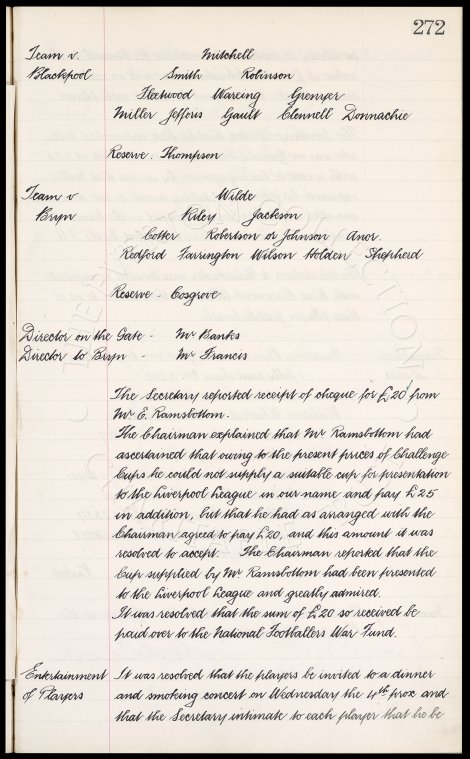 272
Team v. Mitchell
Blackpool Smith Robinson
Fleetwood Wareing Grenyer
Miller Jefferis Gault Clennell Donnachie
Reserve: Thompson
Team v Wilde
Bryn Riley Jackson
Cotter Robertson or Johnson Anor.
Redford Farrington Wilson Holden Shepherd
Reserve - Cosgrove
Director on the Gate - Mr Banks
Director to Bryn - Mr Francis
The Secretary reported receipt of cheque for £20 from
Mr E. Ramsbottom.
The Chairman explained that Mr Ramsbottom had
ascertained that owing to the present prices of Challenge
Cups he could not supply a suitable cup for presentation
to the Liverpool League in our name and pay £25
in addition, but that he had as arranged with the
Chairman agreed to pay £20, and this amount it was
resolved to accept. The Chairman reported that the
Cup supplied by Mr Ramsbottom had been presented
to the Liverpool League and greatly admired.
It was resolved that the sum of £20 so received be
paid over to the National Footballers War Fund.
Entertainment It was resolved that the players be invited to a dinner
of Players and smoking concert on Wednesday the 4th prox and
that the Secretary intimate to each player that he be